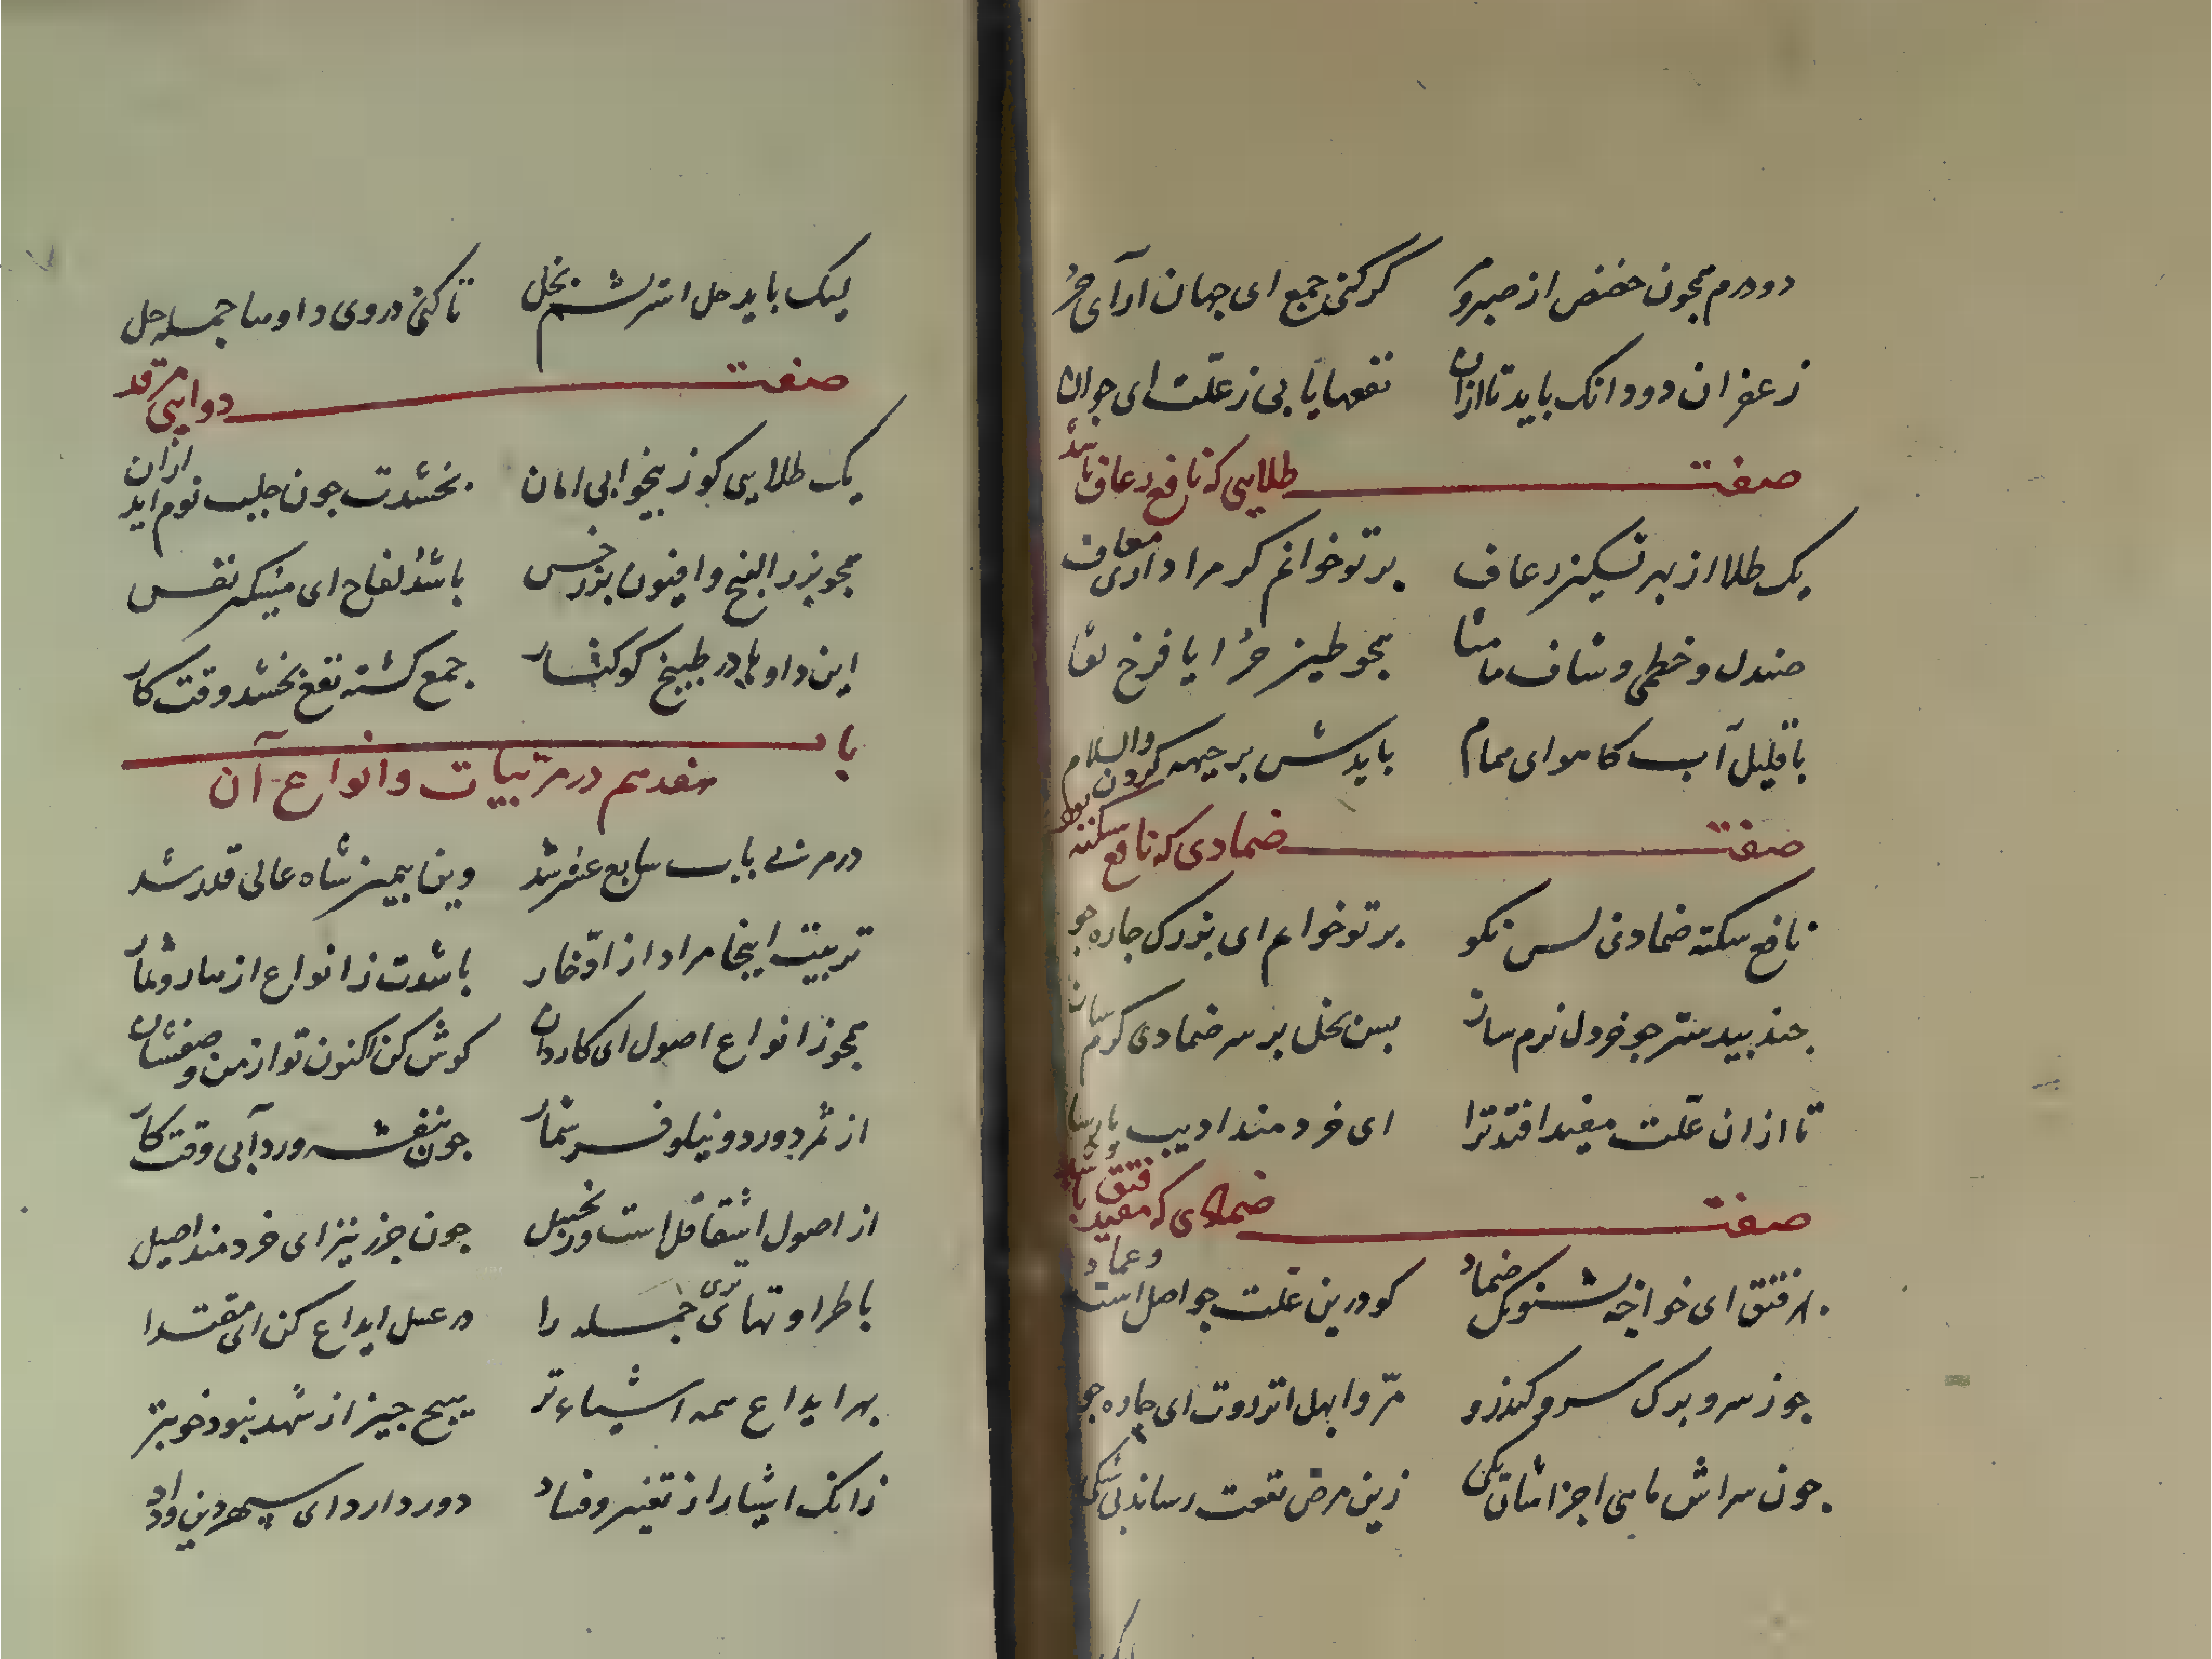 دو درم همچون حضض از صبر و مر گر کنی جمع ای جهان ارآی حُر
زعفران دو دانک باید تا ازان نفعها یابی ز علّت ای جوان
صفت طلایی که نافع رعاف باشد
یک طلا از بهر تسکین رعاف بر تو خوانم کر مرا داری معاف
صندل و خطمی و شاف مامشا همچو طین حُر ایا فرخ لقا
با قلیل آب کاهو ای همام بایدش بر جبهه کردن والسلام
صفت ضمادی که نافع سکته بود
نافع سکته ضمادی بس نکو بر تو خوانم ای بزرک جاره جو
جند بیدستر جو خردل نرم ساز بس بخل بر سر ضمادی کرم سان
تا ازان علّت مفید افتد ترا ای خردمند ادیب و بارسا
صفت ضمادی که مفید فتق باشد
بهر فتق ای خواجه بشنو یک ضماد کو درین علّت جو اصل است و عماد
جوز سرو و برک سرو و کندر و مرّ و ابهل انزروت ای جاره جو
جون سراش ماهی اجزاشان یکی زین مرض نفعت رساند بی شکی
لیک باید حل اسریشم بخل تا کنی در وی داوها جمله حل
صفت دوایی مرقد
یک طلایی کو ز بیخوابی امان بخشدت جون جلب نوم اید ازان
همچو بزر البنج و افیون بزر خس باشد لفاح ای مشکین نفس
این داوها در طبیخ کوکنار جمع کشته نفع بخشد وقت کار
باب
هفدهم در مربیات و انواع آن
در مربی باب سابع عشر شد وین بیمن شاه عالی قدر شد
تربیت اینجا مراد از ادّخار باشدت ز انواع ازهار و ثمار
همچو ز انواع اصول ای کاردان کوش کن اکنون تو از من وصفشان
از ثمر دو ورد و نیلوفر شمار جون بنفشه ورد آبی وقت کار
از اصول اشقاقل است و زنجبیل جون جزر نیز ای خردمند اصیل
با طراوتهای تری جمله را در عسل ایداع کن ای مقتدا
بهر ایداع همه اشیاء تر هیچ جیز از شهد نبود خوبتر
زانک اشیا را ز تغییر و فساد دور دارد ای سپهر دین و داد